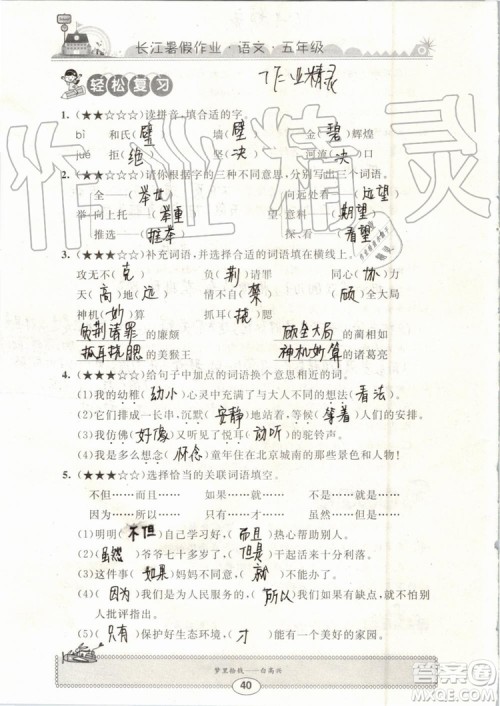 长江暑假作业·语文·五年级
轻松复习
作业精灵
1. (★★☆☆☆)读拼音，填合适的字。
bì 和氏(璧) 墙(壁) 金(碧)辉煌
jué 拒(绝) 坚(决) 河流(决)口
2. (★★☆☆☆)请你根据字的三种不同意思，分别写出三个词语。
全——(举世) 向远处看——(远望)
举 向上托——(举重) 望 意料——(期望)
推选——(推举) 探看——(看望)
3. (★★★☆☆)补充词语，并选择合适的词语填在横线上。
攻无不(克) 负(荆)请罪 同心(协)力
天(高)地(远) 情不自(禁) (顾)全大局
神机(妙)算 抓耳(挠)腮
负荆请罪的廉颇 顾全大局的蔺相如
抓耳挠腮的美猴王 神机妙算的诸葛亮
4. (★★★☆☆)给句子中加点的词语换个意思相近的词。
(1)我的幼稚(幼小)心灵中充满了与大人不同的想法(看法)。
(2)它们排成一长串，沉默(安静)地站着，等候(等着)人们的安排。
(3)我仿佛(好像)又听见了悦耳(动听)的驼铃声。
(4)我是多么想念(怀念)童年住在北京城南的那些景色和人啊！
5. (★★★☆☆)选择恰当的关联词语填空。
不但……而且…… 如果……就…… 只有……才……
因为……所以…… 不是……而是…… 虽然……但是……
(1)明明(不但)自己学习好，(而且)热心帮助别人。
(2)(虽然)爷爷七十多岁了，(但是)干起活来十分利落。
(3)这件事(如果)妈妈不同意，(就)
(4)(因为)我们是为人民服务的，(所以)我们如果有缺点，就不怕别
人批评指出。
(5)(只有)保护好生态环境，(才)能有一个美好的家园。
梦里拾钱——白高兴
40
作业精灵